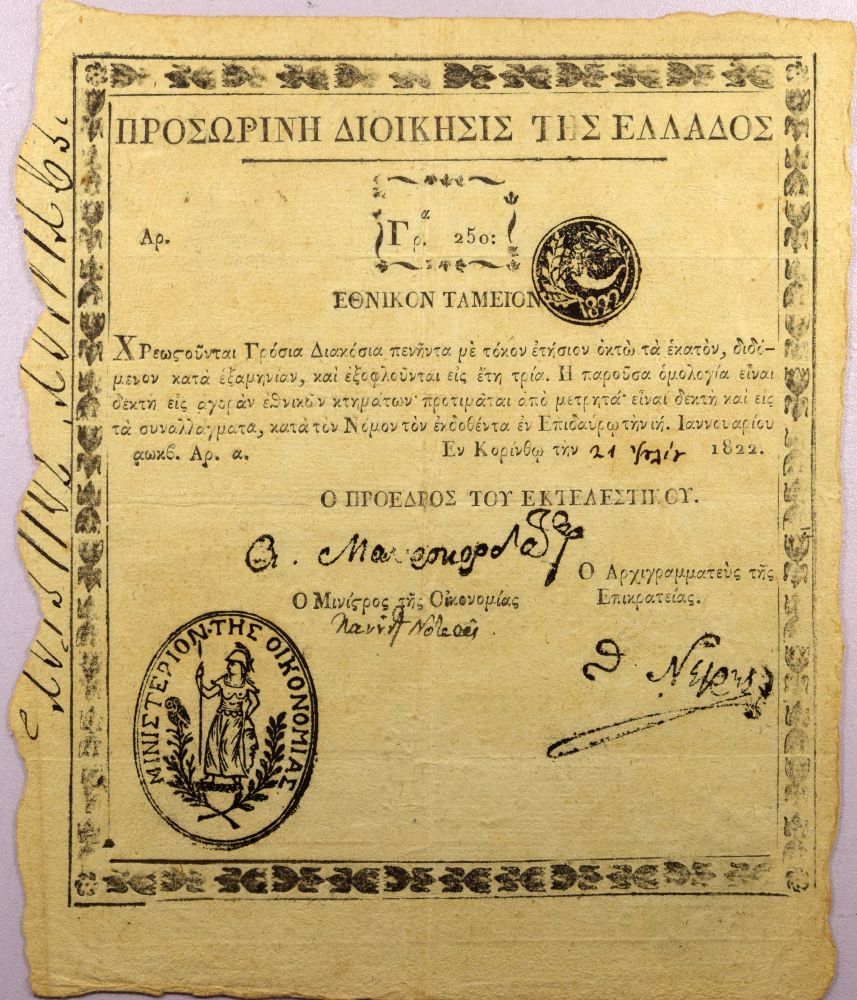 ΠΡΟΣΩΡΙΝΗ ΔΙΟΙΚΗΣΙΣ ΤΗΣ ΕΛΛΑΔΟΣ
Αρ.
Γρ.α 250:
1822
ΕΘΝΙΚΟΝ ΤΑΜΕΙΟΝ
ΧΡεωςοῦνται Γρόσια Διακόσια πενῆντα μὲ τόκον ἐτήσιον ὀκτὼ τὰ ἑκατὸν, διδό-
μενον κατὰ ἑξαμηνίαν, καὶ ἐξοφλοῦνται εἰς ἔτη τρία. Η παροῦσα ὁμολογία εἶναι
δεκτὴ εἰς ἀγορὰν ἐθνικῶν κτημάτων· προτιμᾶται ἀπὸ μετρητά· εἶναι δεκτὴ καὶ εἰς
τὰ συναλλάγματα, κατὰ τὸν Νόμον τὸν ἐκδοθέντα ἐν Επιδαύρῳ τὴν ιή. Ιαννουαρίου
αωκβ. Αρ. α.
Εν Κορίνθῳ τὴν 21 Ιουλίου 1822.
Ο ΠΡΟΕΔΡΟΣ ΤΟΥ ΕΚΤΕΛΕΣΤΙΚΟΥ.
Α. Μαυροκορδάτος
Ο Αρχιγραμματεὺς τῆς
Επικρατείας.
Ο Μινίςρος τῆς Οἰκονομίας
Πανούτζος Νοταρᾶς
Θ Νέγρης
ΜΙΝΙΣΤΕΡΙΟΝ·ΤΗΣ ΟΙΚΟΝΟΜΙΑΣ